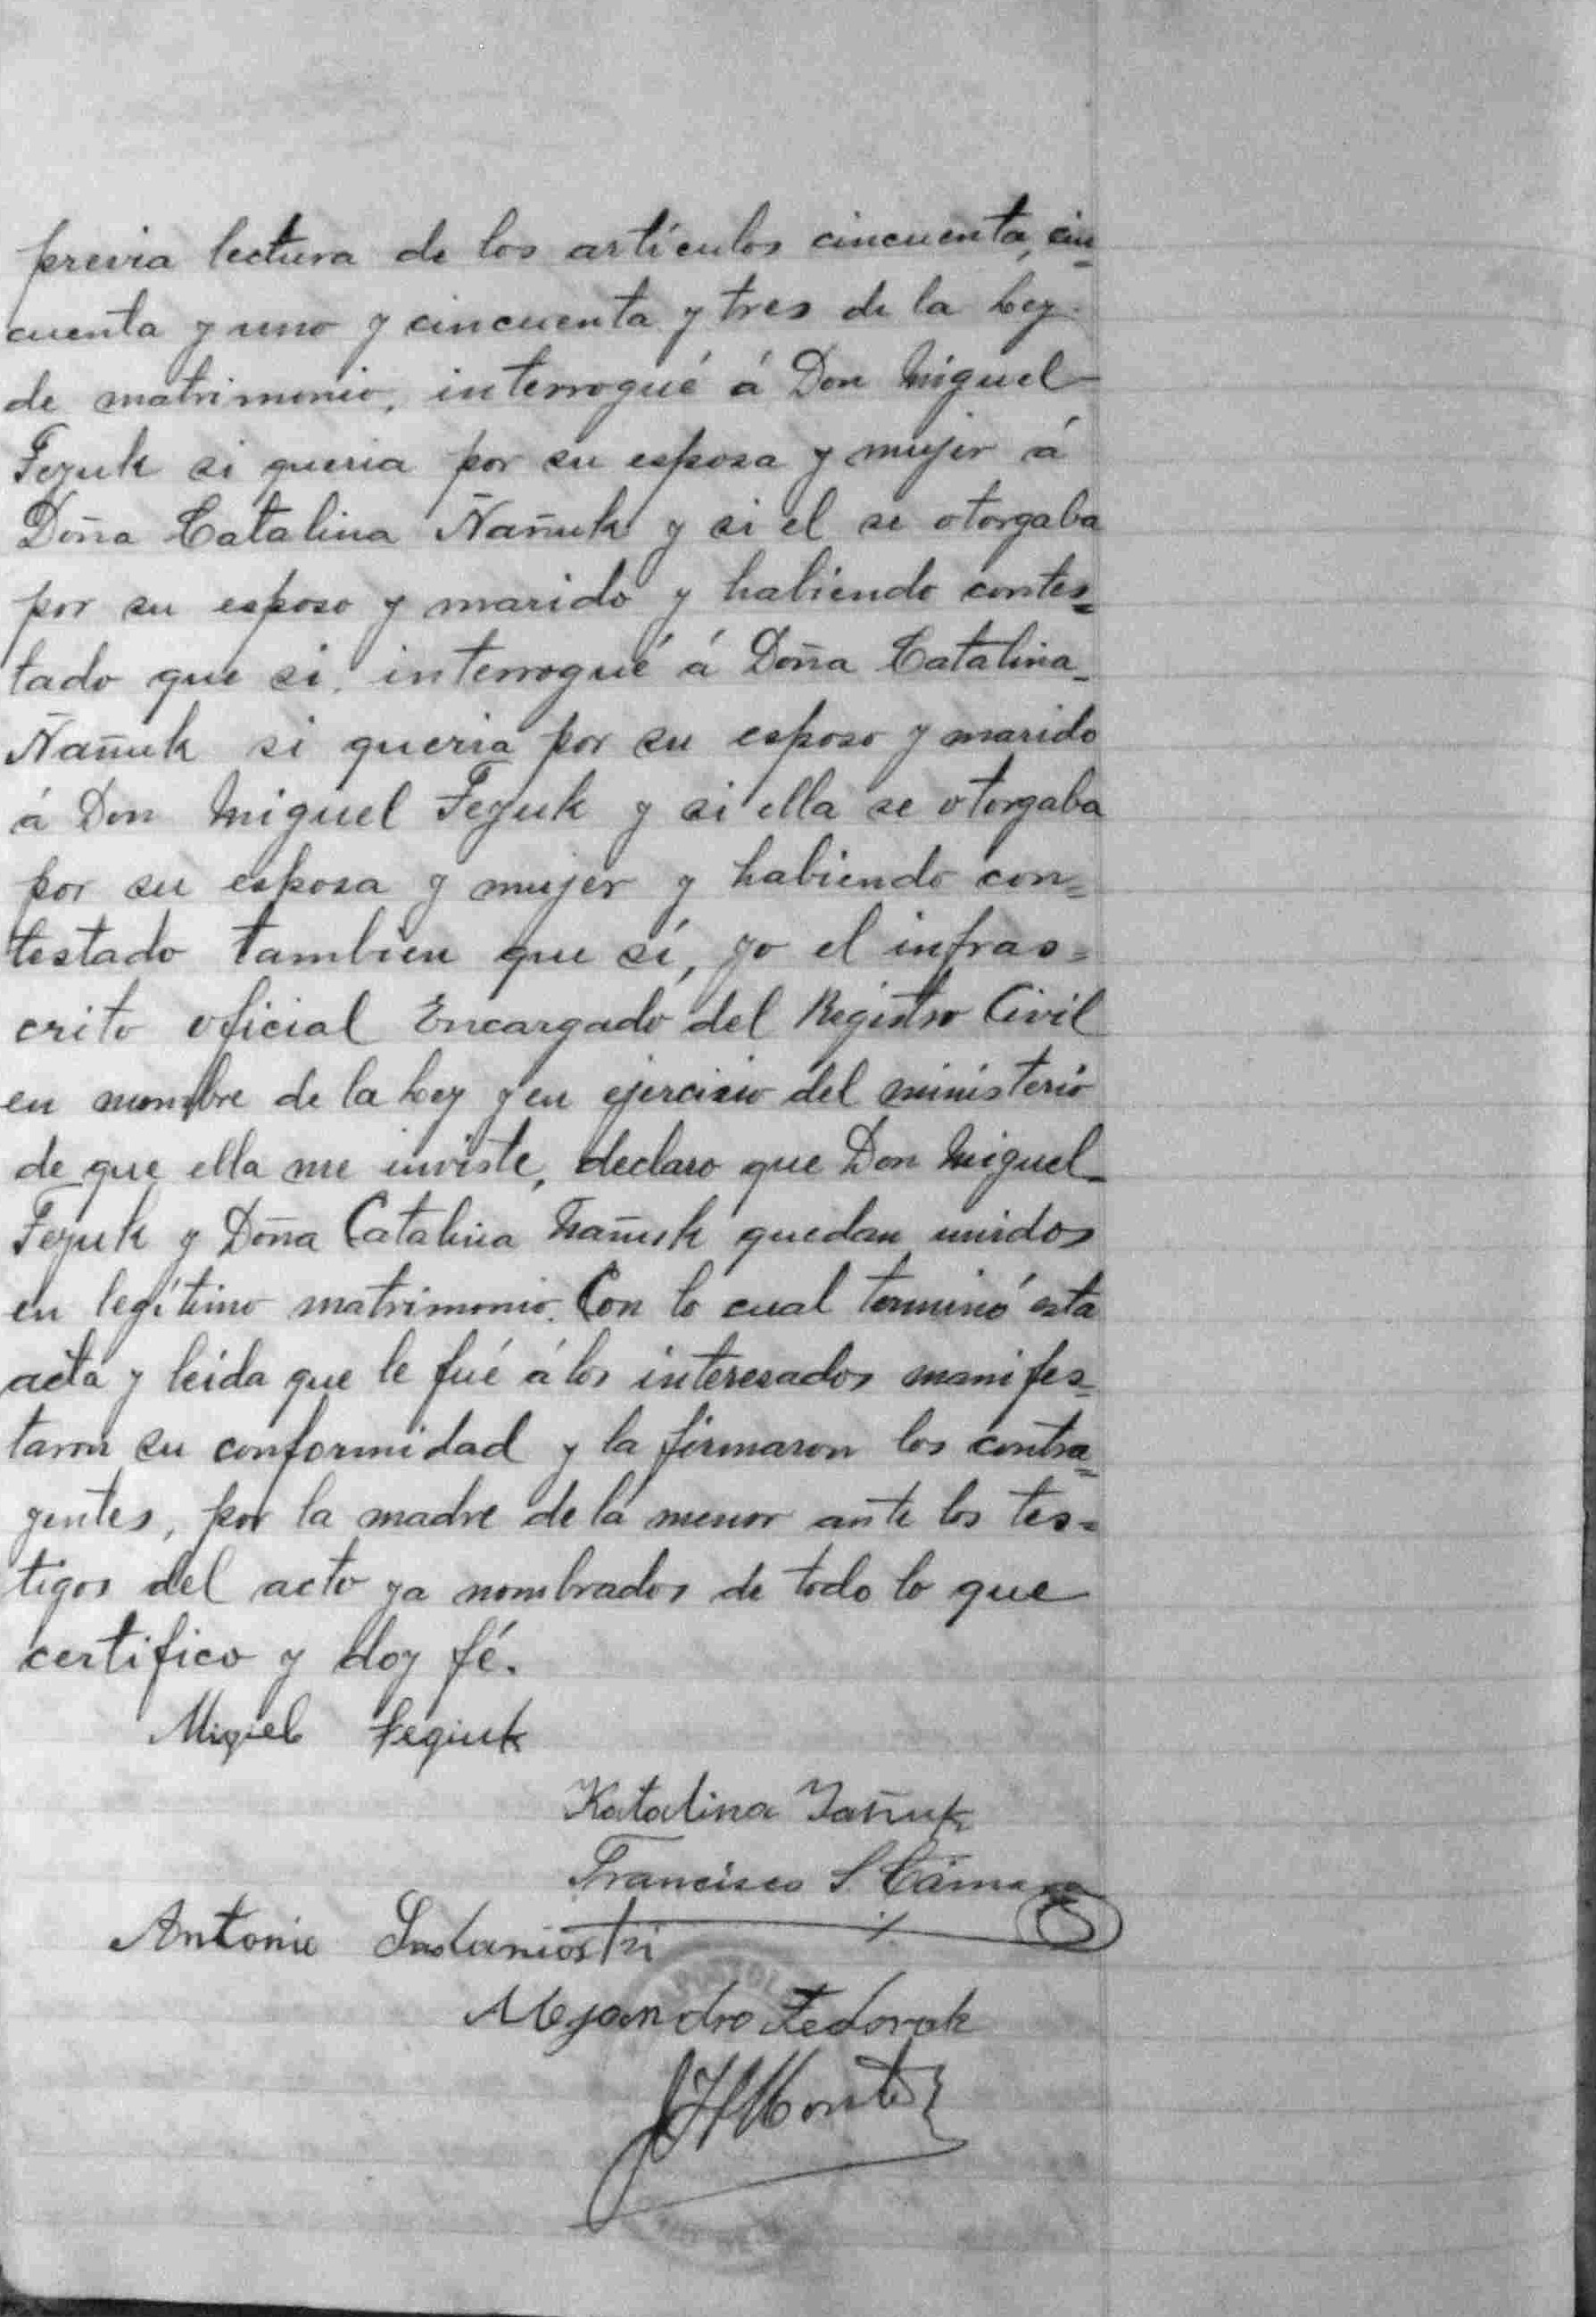 previa lectura de los artículos cincuenta, cin=
cuenta y uno y cincuenta y tres de la Ley
de matrimonio, interrogué á Don Miguel
Feyuk si queria por su esposa y mujer á
Doña Catalina Ñañuk y si el se otorgaba
por su esposo y marido y habiendo contes=
tado que si, interrogué á Doña Catalina
Ñañuk si queria por su esposo y marido
á Don Miguel Feyuk y si ella se otorgaba
por su esposa y mujer y habiendo con=
testado tambien que sí, yo el infras=
crito oficial Encargado del Registro Civil
en nombre de la Ley y en ejercicio del ministerio
de que ella me inviste, declaro que Don Miguel
Feyuk y Doña Catalina Ñañuk quedan unidos
en legítimo matrimonio. Con lo cual terminó esta
acta y leida que le fué á los interesados manifes=
taron su conformidad y la firmaron los contra=
yentes, por la madre de la menor ante los tes=
tigos del acto ya nombrados de todo lo que
certifico y doy fé.
Miguel Fegiuk
Katalina Ñañuk
Francisco S. Cámara
Antonio
Alejandro Fedorak